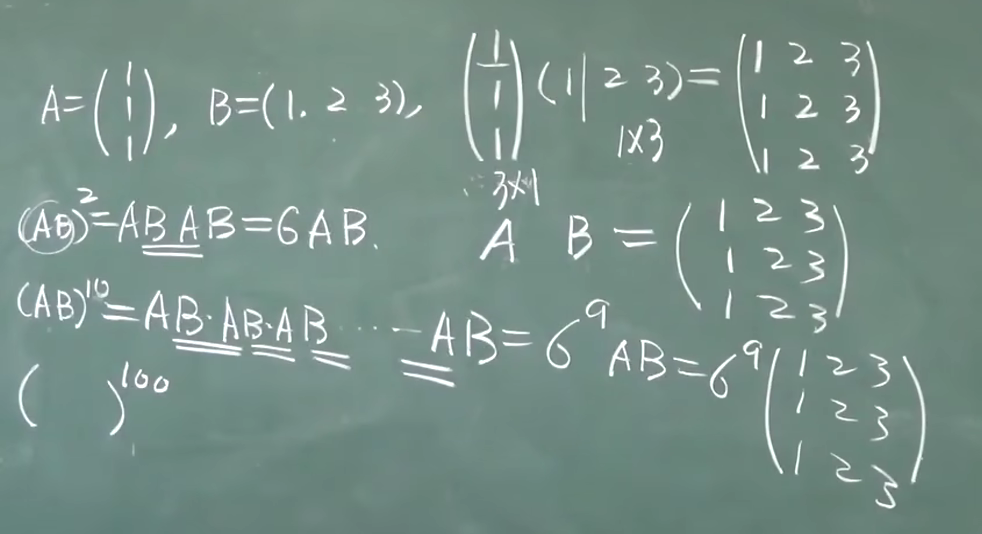 A=(1 1 1), B=(1. 2 3), (1 1 1)(1|2 3)=(1 2 3
1 2 3
1 2 3)
3×1 1×3
(AB)²=ABAB=6AB. A B=(1 2 3
1 2 3
1 2 3)
(AB)¹⁰=AB·AB·AB······AB=6⁹AB=6⁹(1 2 3
1 2 3
1 2 3)
( )¹⁰⁰